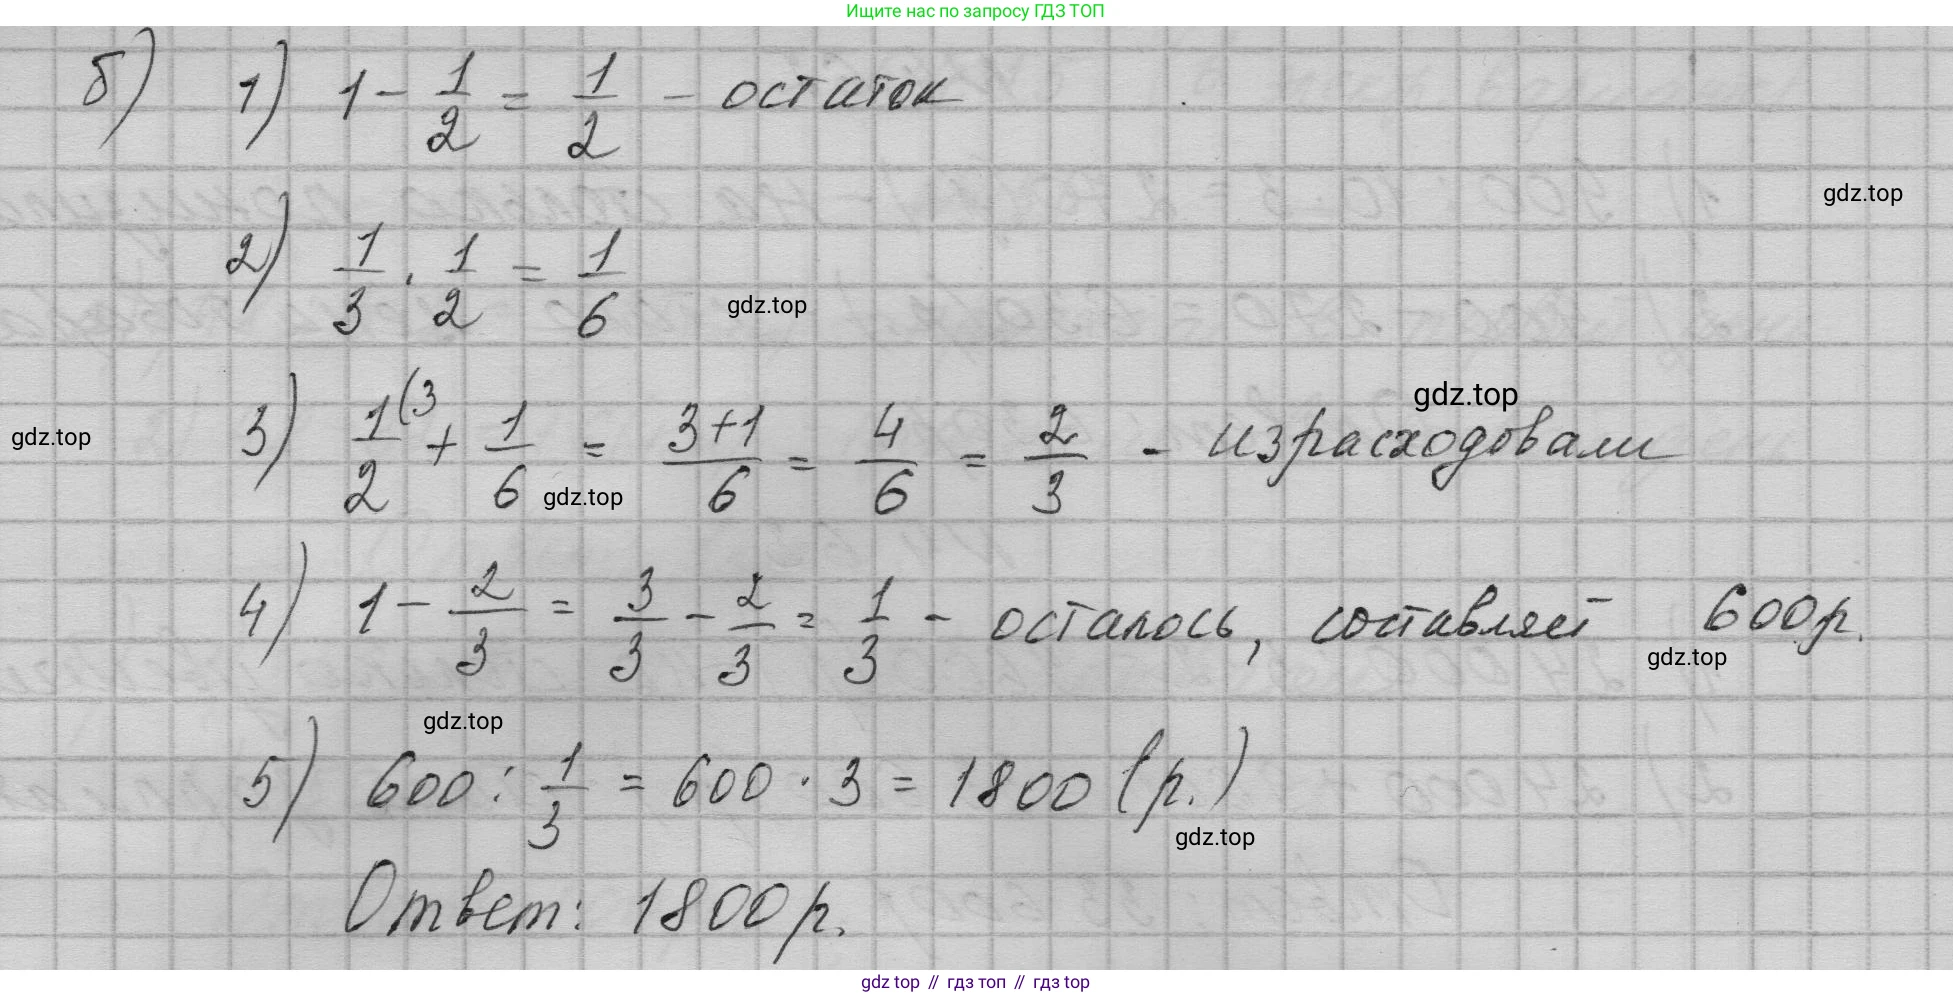 Ищите нас по запросу ГДЗ ТОП
б) 1) 1 - 1/2 = 1/2 - остаток
gdz.top
2) 1/3 · 1/2 = 1/6
gdz.top
gdz.top
3) 1/2 (3 + 1/6 = 3+1/6 = 4/6 = 2/3 - израсходовали
gdz.top
gdz.top
4) 1 - 2/3 = 3/3 - 2/3 = 1/3 - осталось, составляет 600р.
gdz.top
gdz.top
5) 600 : 1/3 = 600 · 3 = 1800 (р.)
gdz.top
Ответ: 1800р.
gdz top // гдз топ // gdz top